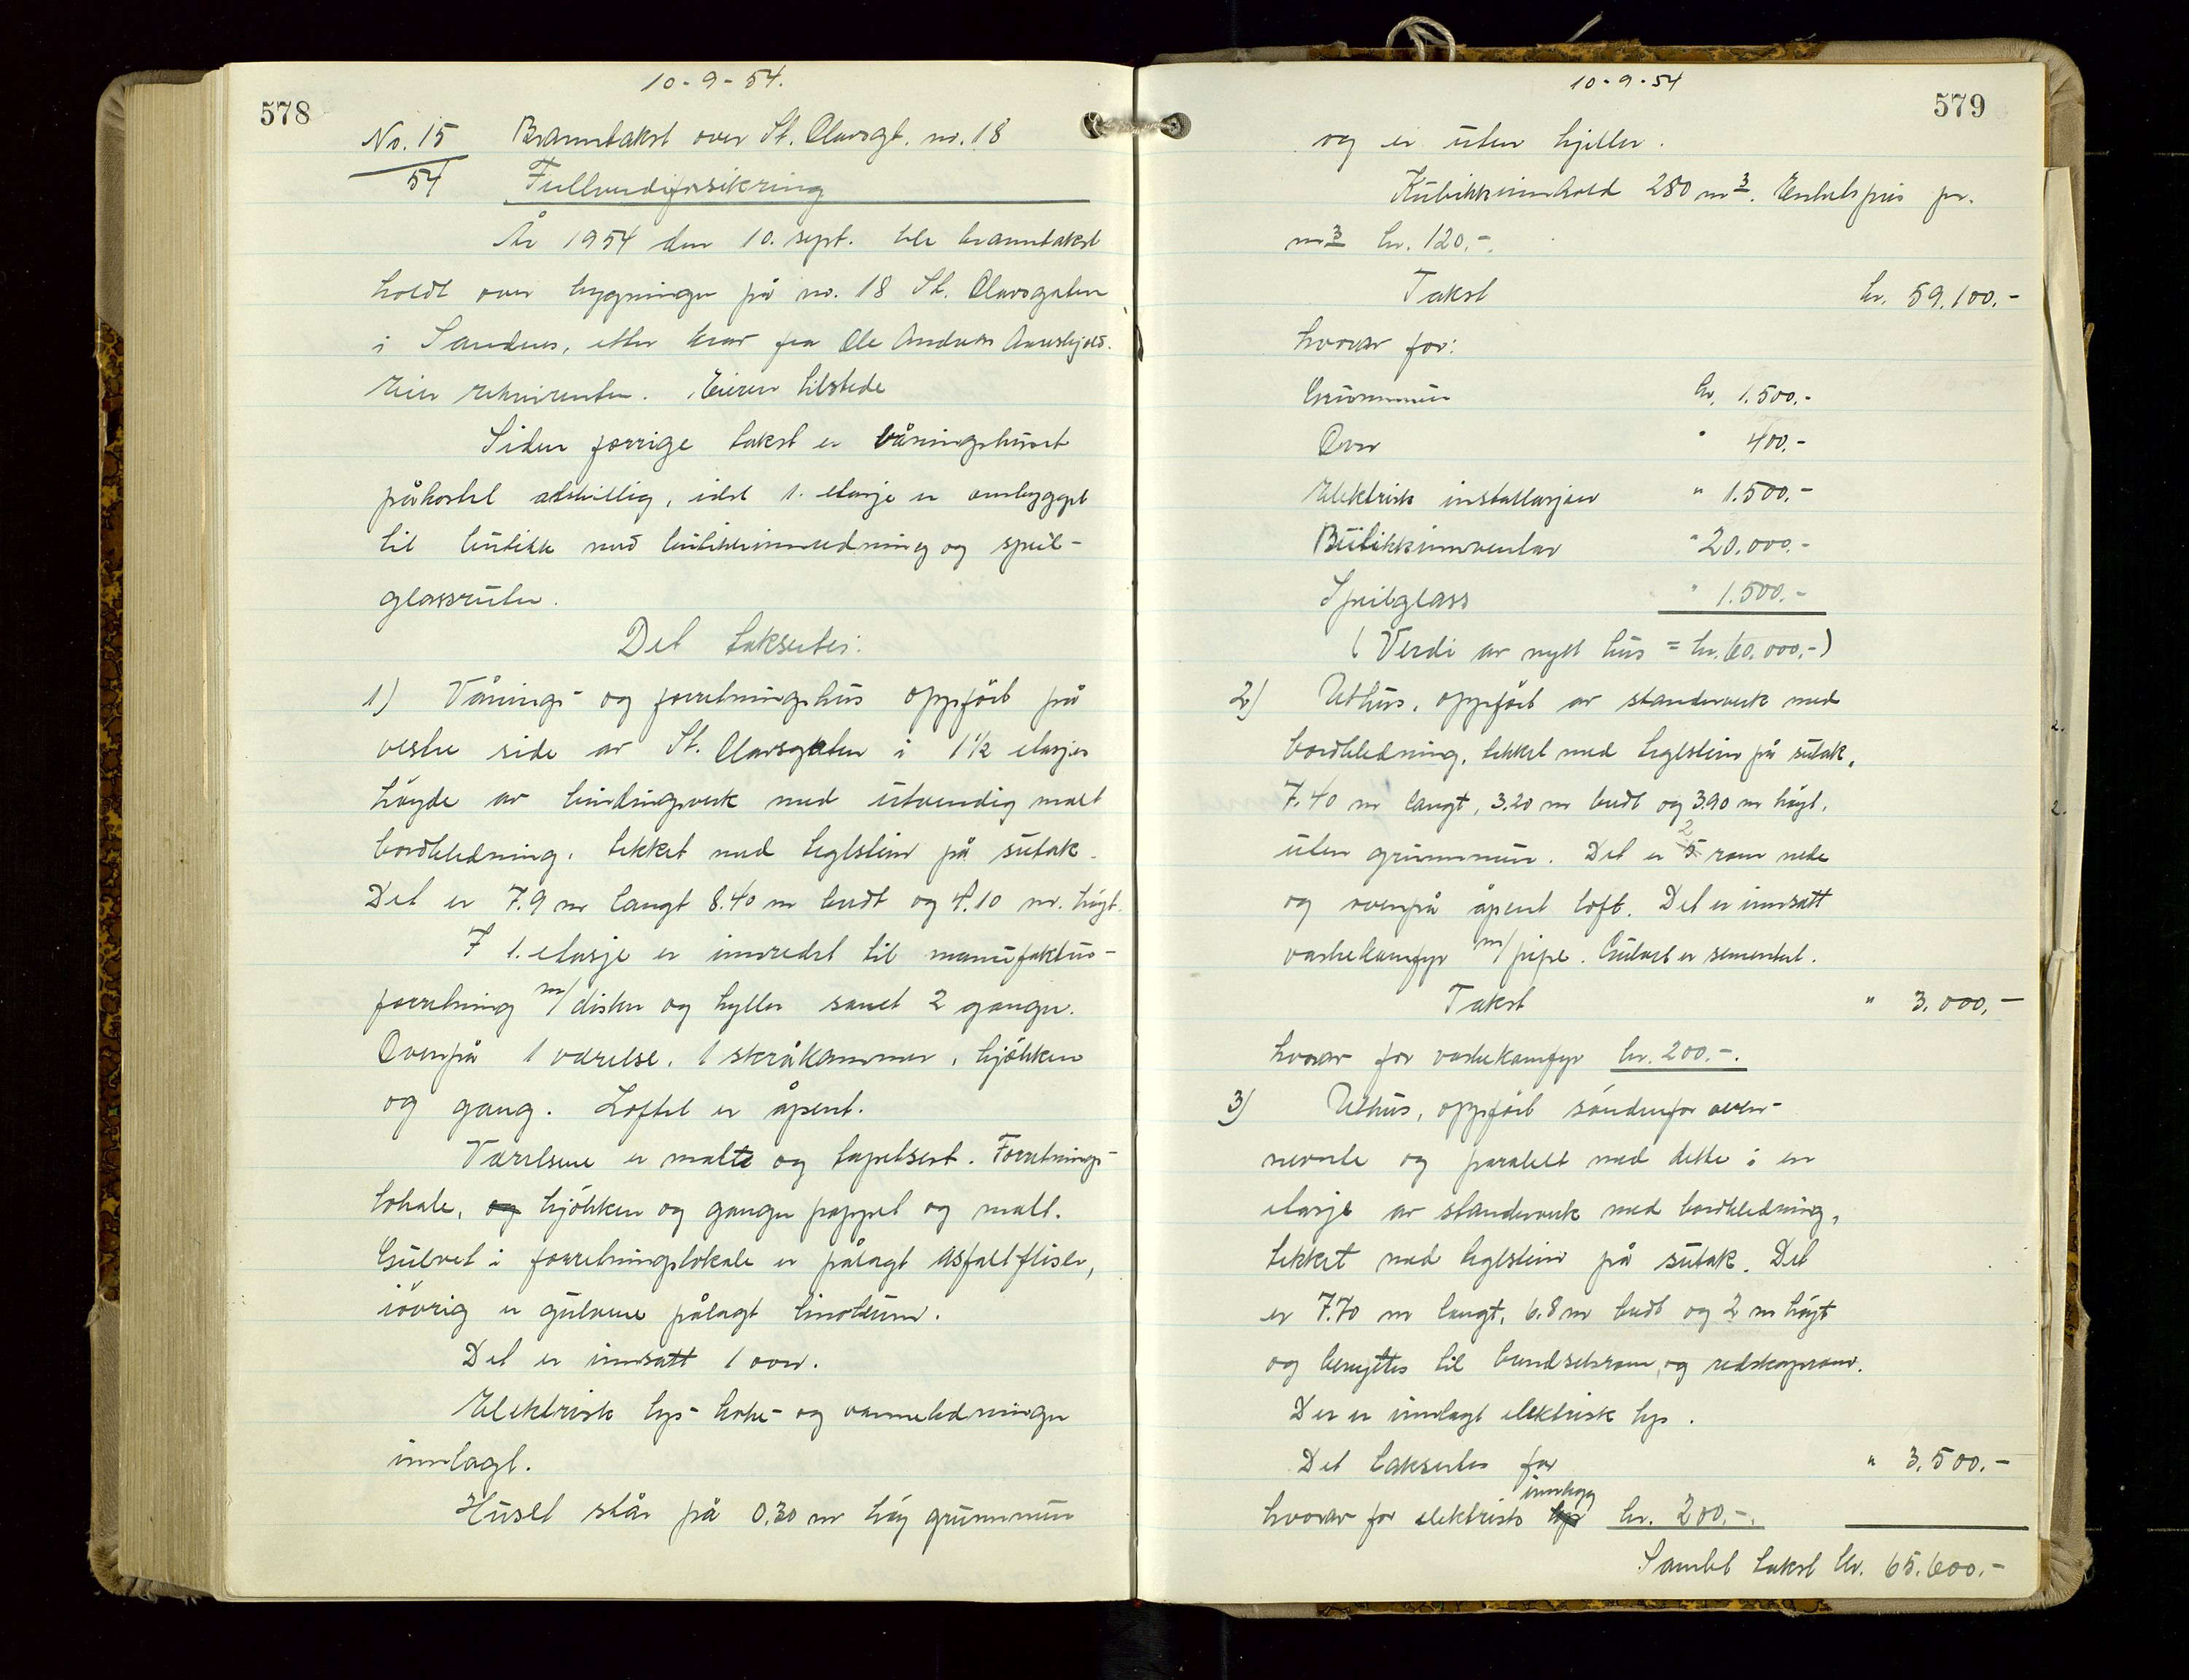 578
10-9-54.
No. 15
54
Branntakst over St. Olavsgt. no. 18
Fullverdiforsikring
År 1954 den 10. sept. ble branntakst
holdt over bygninger på no. 18 St. Olavsgaten
i Sandnes, etter krav fra Ole Andreas
Eier rekvirenten. Eieren tilstede
Siden forrige takst er våningshuset
påkostet adskillig, idet 1. etasje er ombygget
til butikk med butikkinnredning og speil-
glassruter.
Det takseres:
1) Vånings- og forretningshus oppført på
vestre side av St. Olavsgaten i 1 1/2 etasjes
høyde av bindingsverk med utvendig malt
bordkledning, tekket med teglstein på sutak.
Det er 7.9 m langt 8.40 m bredt og 4.10 m. høgt.
I 1. etasje er innredet til manufaktur-
forretning m/disker og hyller samt 2 ganger.
Ovenpå 1 værelse, 1 skråkammer, kjøkken
og gang. Loftet er åpent.
Værelsene er malte og tapetsert. Forretnings-
lokale, og kjøkken og ganger pappet og malt.
Gulvet i forretningslokale er pålagt asfaltfliser,
iøvrig er gulvene pålagt linoleum.
Det er innsatt 1 ovn.
Elektrisk lys- koke- og varmeledninger
innlagt.
Huset står på 0.30 m høy grunnmur
10-9-54
579
og er uten kjeller.
Kubikkinnhold 280 m3. Enhetspris pr.
m3 kr. 120.-
Takst kr. 59.100.-
hvorav for:
Grunnmur kr. 1.500.-
Ovn " 400.-
Elektrisk installasjon " 1.500.-
Butikkinventar " 20.000.-
Speilglass " 1.500.-
(Verdi av nytt hus = kr. 60.000.-)
2) Uthus, oppført av standerverk med
bordkledning, tekket med teglstein på sutak,
7.40 m langt, 3.20 m bredt og 3.90 m høgt,
2
uten grunnmur. Det er 5 rom nede
og ovenpå åpent loft. Det er innsatt
vaskekomfyr m/pipe. Gulvet er sementert.
Takst " 3.000.-
hvorav for vaskekomfyr kr. 200.-.
3) Uthus, oppført søndenfor oven-
nevnte og paralelt med dette i en
etasje av standerverk med bordkledning,
tekket med teglstein på sutak. Det
er 7.70 m langt, 6.8 m bredt og 2 m høgt
og benyttes til brendselsrom og redskapsrom.
Der er innlagt elektrisk lys.
Det takseres for " 3.500.-
innlegg
hvorav for elektrisk lys kr. 200.-.
Samlet takst kr. 65.600.-